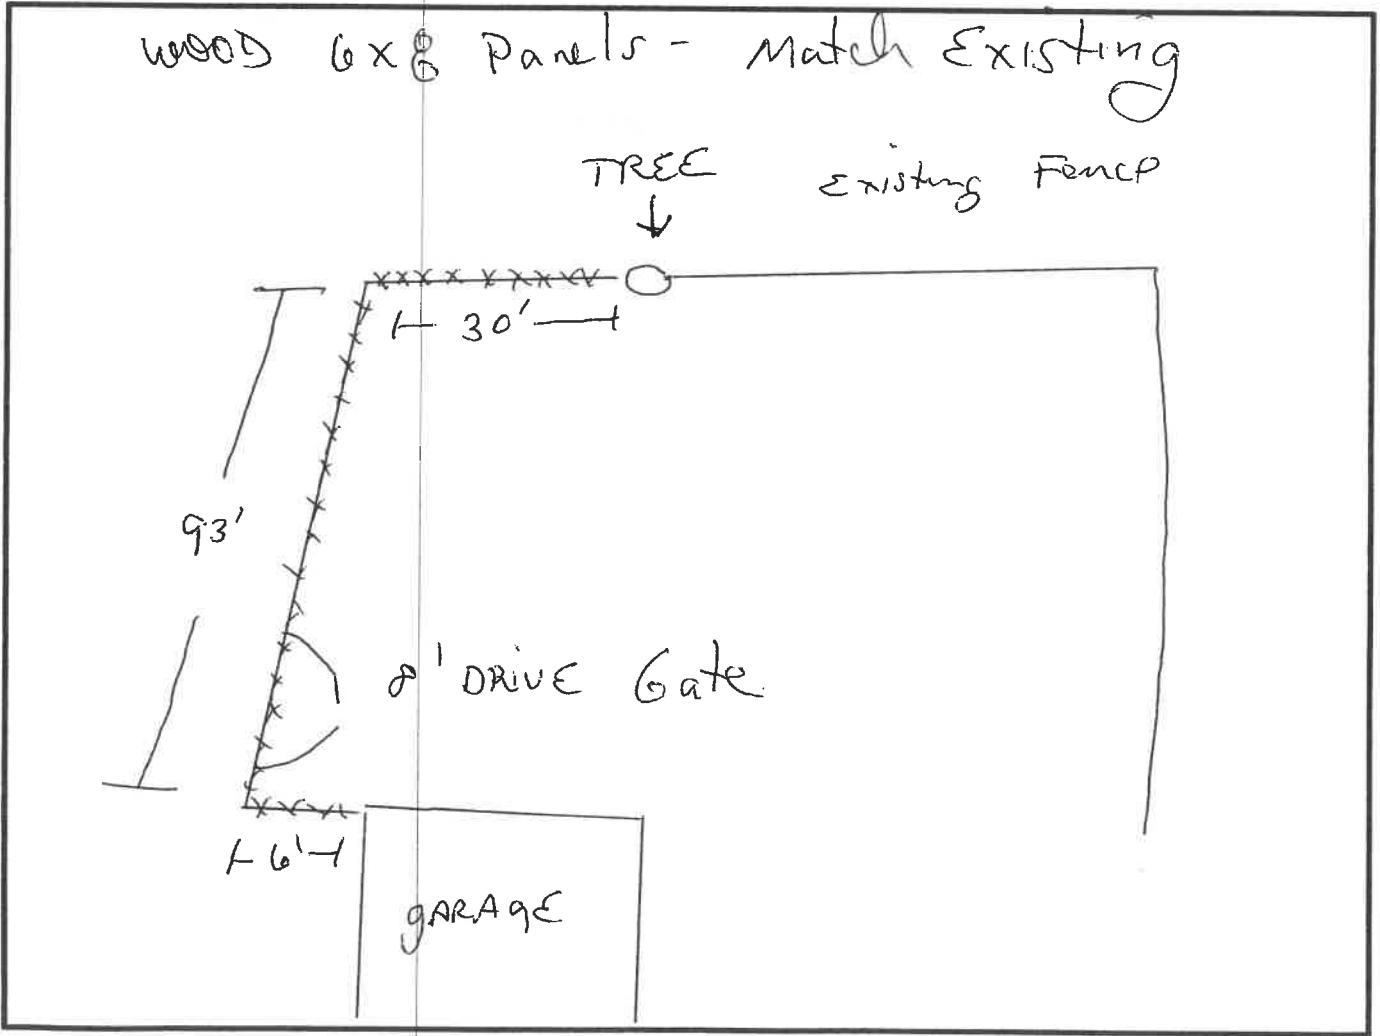 WOOD 6x8 Panels - Match Existing
TREE
Existing Fence
30'
93'
8' DRIVE Gate
6'
GARAGE